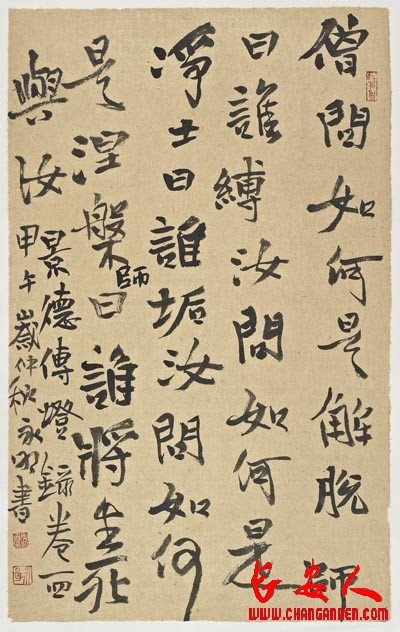 僧問如何是解脱師
曰誰縛汝問如何是
淨土曰誰垢汝問如何
是涅槃師曰誰將生死
與汝
景德傳燈錄卷四
甲午歲仲秋永明書
长安人
WWW.CHANGANREN.COM